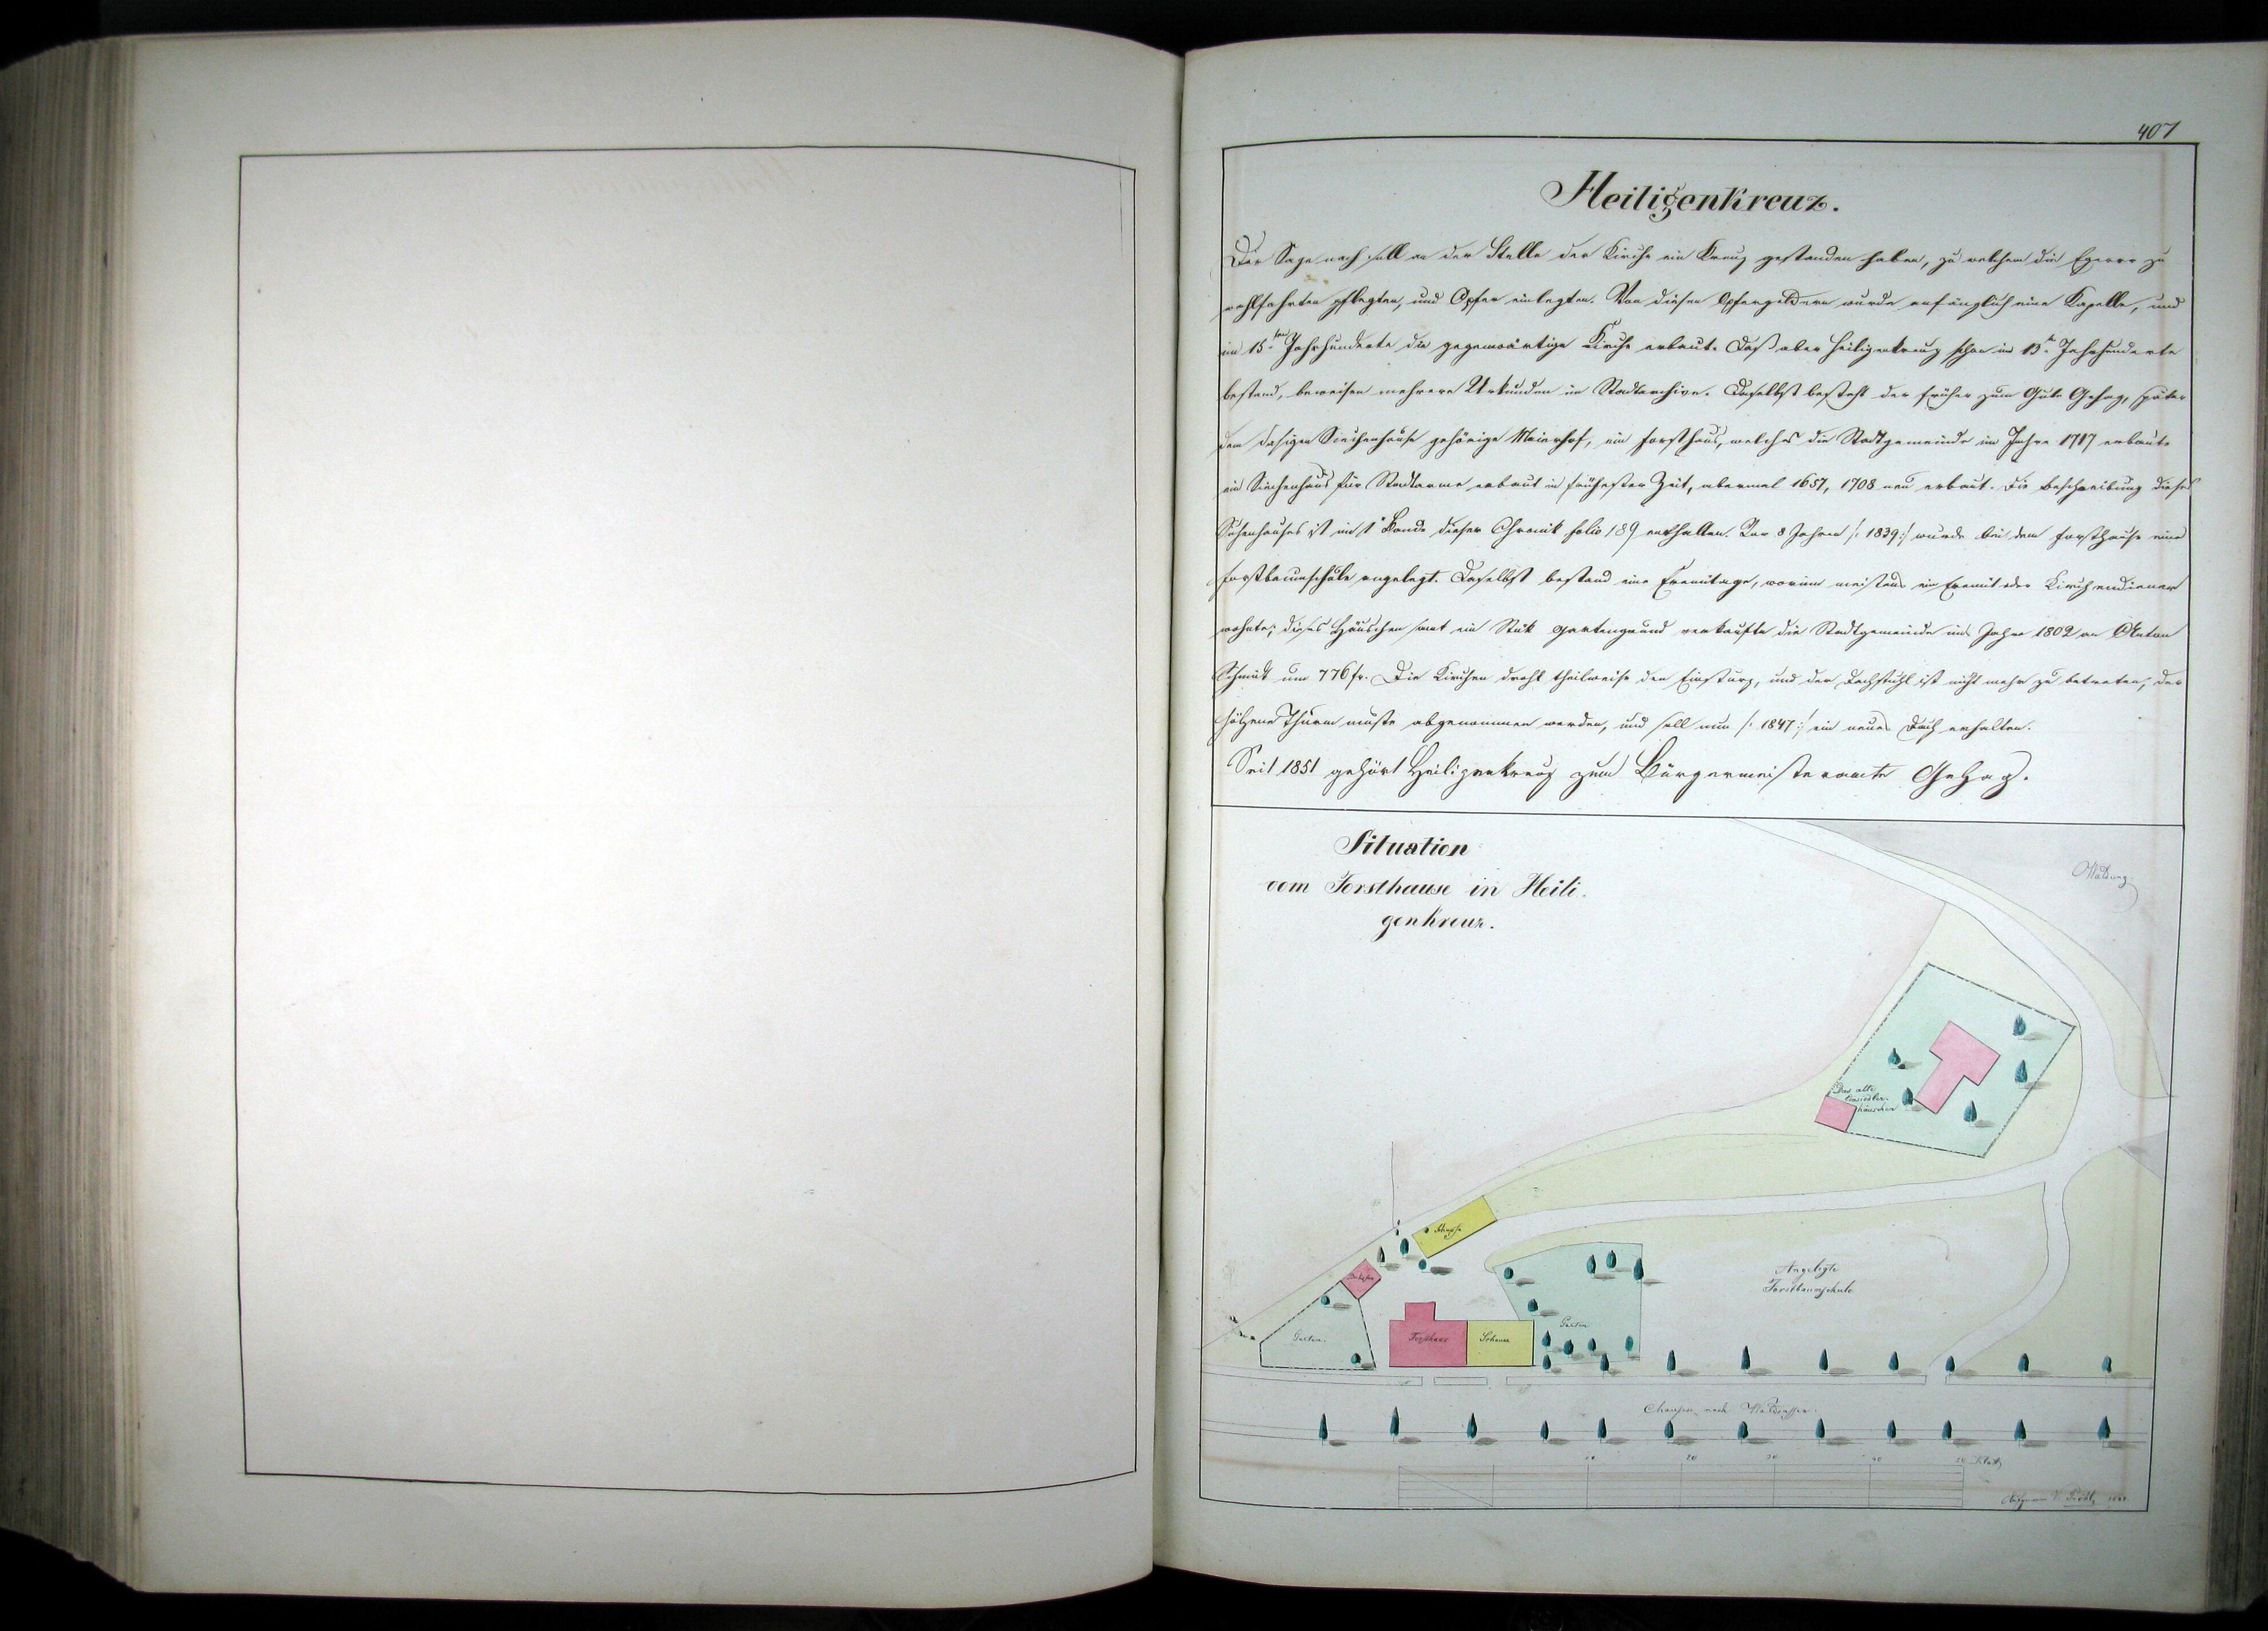 407
Heiligenkreuz.
Der Sage nach soll an der Stelle der Kirche ein Kreuz gestanden haben, zu welchem die Egerer zu
wahlfahrten pflegten, und Opfer einlegten. Von diesen Opfergeldern wurde anfänglich eine Kapelle, und
im 15ten Jahrhunderte die gegenwärtige Kirche erbaut. Daß aber Heiligenkreuz schon im 13t. Jahrhunderte
bestand, beweisen mehrere Urkunden im Stadtarchive. Daselbst besteht der früher zum Gute Gehag, später
dem dasigen Siechenhause gehörige Maierhof, ein Forsthaus, welches die Stadtgemeinde im Jahre 1717 erbaute
ein Siechenhaus für Stadtarme erbaut in frühester Zeit, abermal 1657, 1708 neu erbaut. Die Beschreibung dieses
Sichenhauses ist im 1t Bande dieser Chronik folio 189 enthalten. Vor 8 Jahren /: 1839 :/ wurde bei dem Forsthause eine
Forstbaumschule angelegt. Daselbst bestand eine Eremitage, worinn meistens ein Eremit oder Kirchendiener
wohnte; dieses Häuschen samt ein Stük Gartengrund verkaufte die Stadtgemeinde im Jahre 1802 an Anton
Schmidt um 776 fr. Die Kirchen droht theilweise den Einsturz, und der Dachstuhl ist nicht mehr zu betreten, der
hölzene Thurm mußte abgenommen werden, und soll nun /: 1847 :/ ein neues Dach erhalten.
Seit 1851 gehört Heiligenkreuz zum Bürgermeisteramte Gehag.
Situation
vom Forsthause in Heili-
genkreuz.
Waldung
Das alte
Einsiedler-
häuschen
Angelegte
Forstbaumschule
Garten.
Forsthaus
Scheuer
Garten
Chaussee nach Waldsassen.
10 20 30 40 50 Klaft.